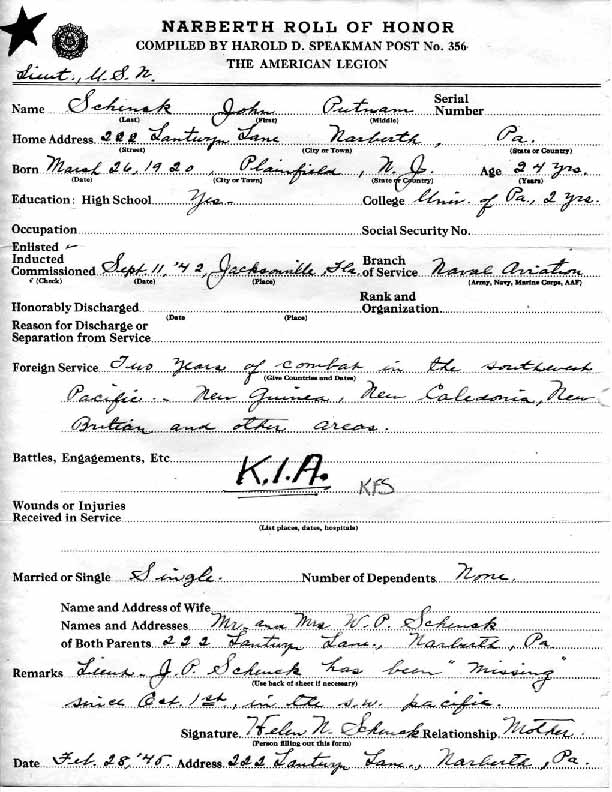 NARBERTH ROLL OF HONOR
COMPILED BY HAROLD D. SPEAKMAN POST No. 356
THE AMERICAN LEGION
Lieut., U.S.N.
Name Schenck John Putnam Serial Number
(Last) (First) (Middle)
Home Address 222 Lantwyn Lane Narberth, Pa.
(Street) (City or Town) (State or Country)
Born March 26, 1920, Plainfield, N. J. Age 24 yrs.
(Date) (City or Town) (State or Country) (Years)
Education: High School Yes College Univ. of Pa., 2 yrs.
Occupation Social Security No.
Enlisted
Inducted
Commissioned Sept. 11, '42, Jacksonville, Fla. Branch of Service Naval Aviation
✓ (Check) (Date) (Place) (Army, Navy, Marine Corps, AAF)
Honorably Discharged Rank and Organization
(Date (Place)
Reason for Discharge or
Separation from Service
Foreign Service Two years of combat in the southwest
(Give Countries and Dates)
Pacific - New Guinea, New Caledonia, New
Britian and other areas.
Battles, Engagements, Etc.
K.I.A. KFS
Wounds or Injuries
Received in Service
(List places, dates, hospitals)
Married or Single Single. Number of Dependents None.
Name and Address of Wife
Names and Addresses Mr. and Mrs W. P. Schenck
of Both Parents 222 Lantwyn Lane, Narberth, Pa
Remarks Lieut. J. P. Schenck has been "missing"
(Use back of sheet if necessary)
since Oct. 1st, in the s.w. pacific.
Signature Helen N. Schenck Relationship Mother.
(Person filling out this form)
Date Feb. 28, '45. Address 222 Lantwyn Lane, Narberth, Pa.